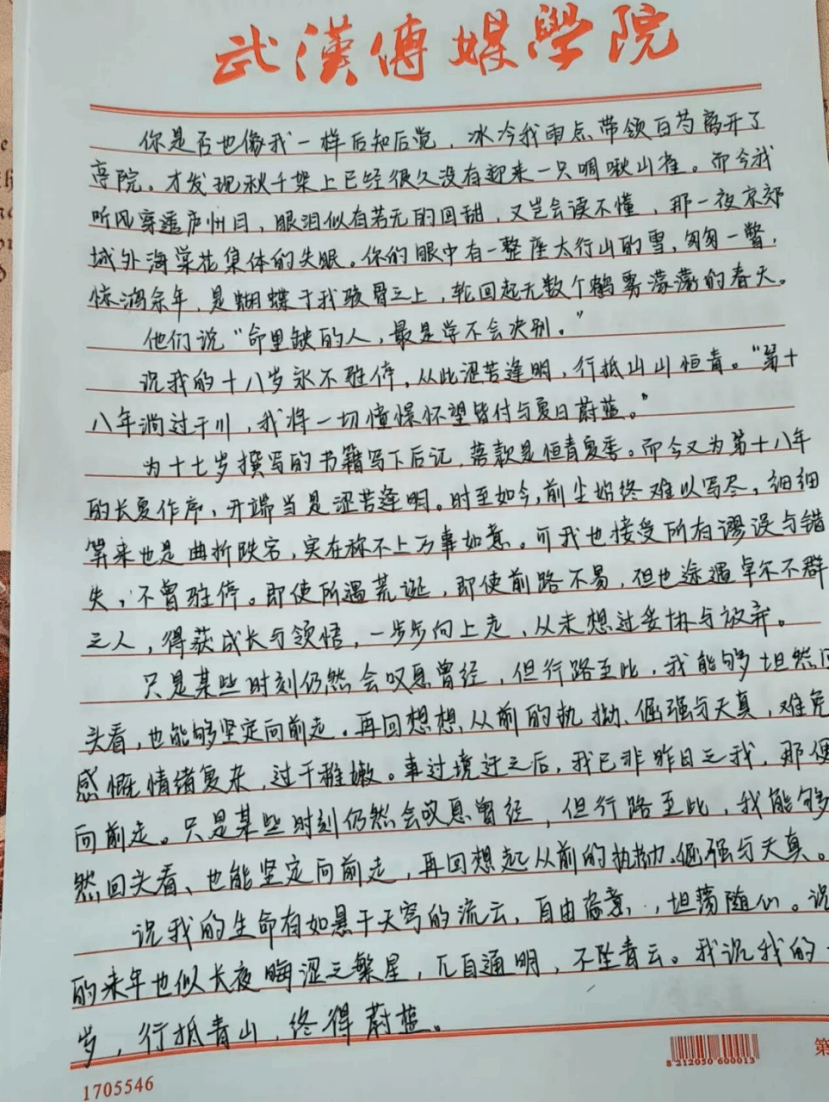 武漢傳媒學院
你是否也像我一样后知后觉，冰冷我雨点带领百芍离开了
亭院。才发现秋千架上已经很久没有起来一只啁啾山雀。而今我
听风穿遥庐州目，眼泪似有若无的回甜，又岂会读不懂，那一夜京郊
域外海棠花集体的失眠。你的眼中有一整座太行山的雪，匆匆一瞥，
惊鸿余年，是蝴蝶于我骇骨之上，轮回起无数个鹤雾濛濛的春天。
他们说“命里缺的人，最是学不会决别。”
说我的十八岁永不驻停，从此涩苦逢明，行抵山山恒青。“第十
八年淌过千川，我将一切憧憬怀望皆付与夏日蔚蓝。”
为十七岁撰写的书籍写下后记，落款是恒青夏季。而今又为第十八年
的长夏作序，开端当是涩苦逢明。时至如今，前尘始终难以写尽，细细
算来也是曲折跌宕，实在称不上万事如意。可我也接受所有谬误与错
失，不曾驻停。即使所遇荒诞，即使前路不易，但也途遇卓尔不群
之人，得获成长与领悟，一步步向上走，从未想过妥协与放弃。
只是某些时刻仍然会叹息曾经，但行路至此，我能够坦然回
头看，也能够坚定向前走。再回想想从前的执拗、倔强与天真，难免
感慨情绪复杂，过于稚嫩。事过境迁之后，我已非昨日之我，那便
向前走。只是某些时刻仍然会叹息曾经，但行路至此，我能够
然回头看、也能坚定向前走，再回想起从前的执拗、倔强与天真。
说我的生命有如悬于天穹的流云，自由惬意，坦荡随心。说
的来年也似长夜晦涩之繁星，兀自通明，不坠青云。我说我的
岁，行抵青山，终得蔚蓝。
1705546
8 212050 600013
第